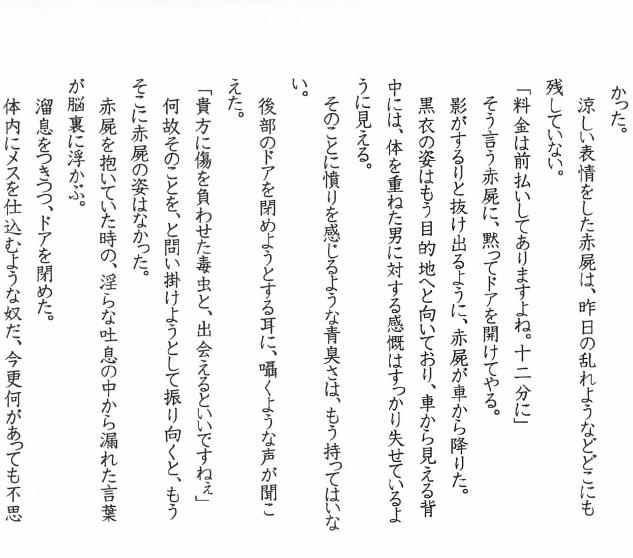 かった。
涼しい表情をした赤屍は、昨日の乱れようなどどこにも
残していない。
「料金は前払いしてありますよね。十二分に」
そう言う赤屍に、黙ってドアを開けてやる。
影がするりと抜け出るように、赤屍が車から降りた。
黒衣の姿はもう目的地へと向いており、車から見える背
中には、体を重ねた男に対する感慨はすっかり失せているよ
うに見える。
そのことに憤りを感じるような青臭さは、もう持ってはいな
い。
後部のドアを閉めようとする耳に、囁くような声が聞こ
えた。
「貴方に傷を負わせた毒虫と、出会えるといいですねぇ」
何故そのことを、と問い掛けようとして振り向くと、もう
そこに赤屍の姿はなかった。
赤屍を抱いていた時の、淫らな吐息の中から漏れた言葉
が脳裏に浮かぶ。
溜息をつきつつ、ドアを閉めた。
体内にメスを仕込むような奴だ、今更何があっても不思